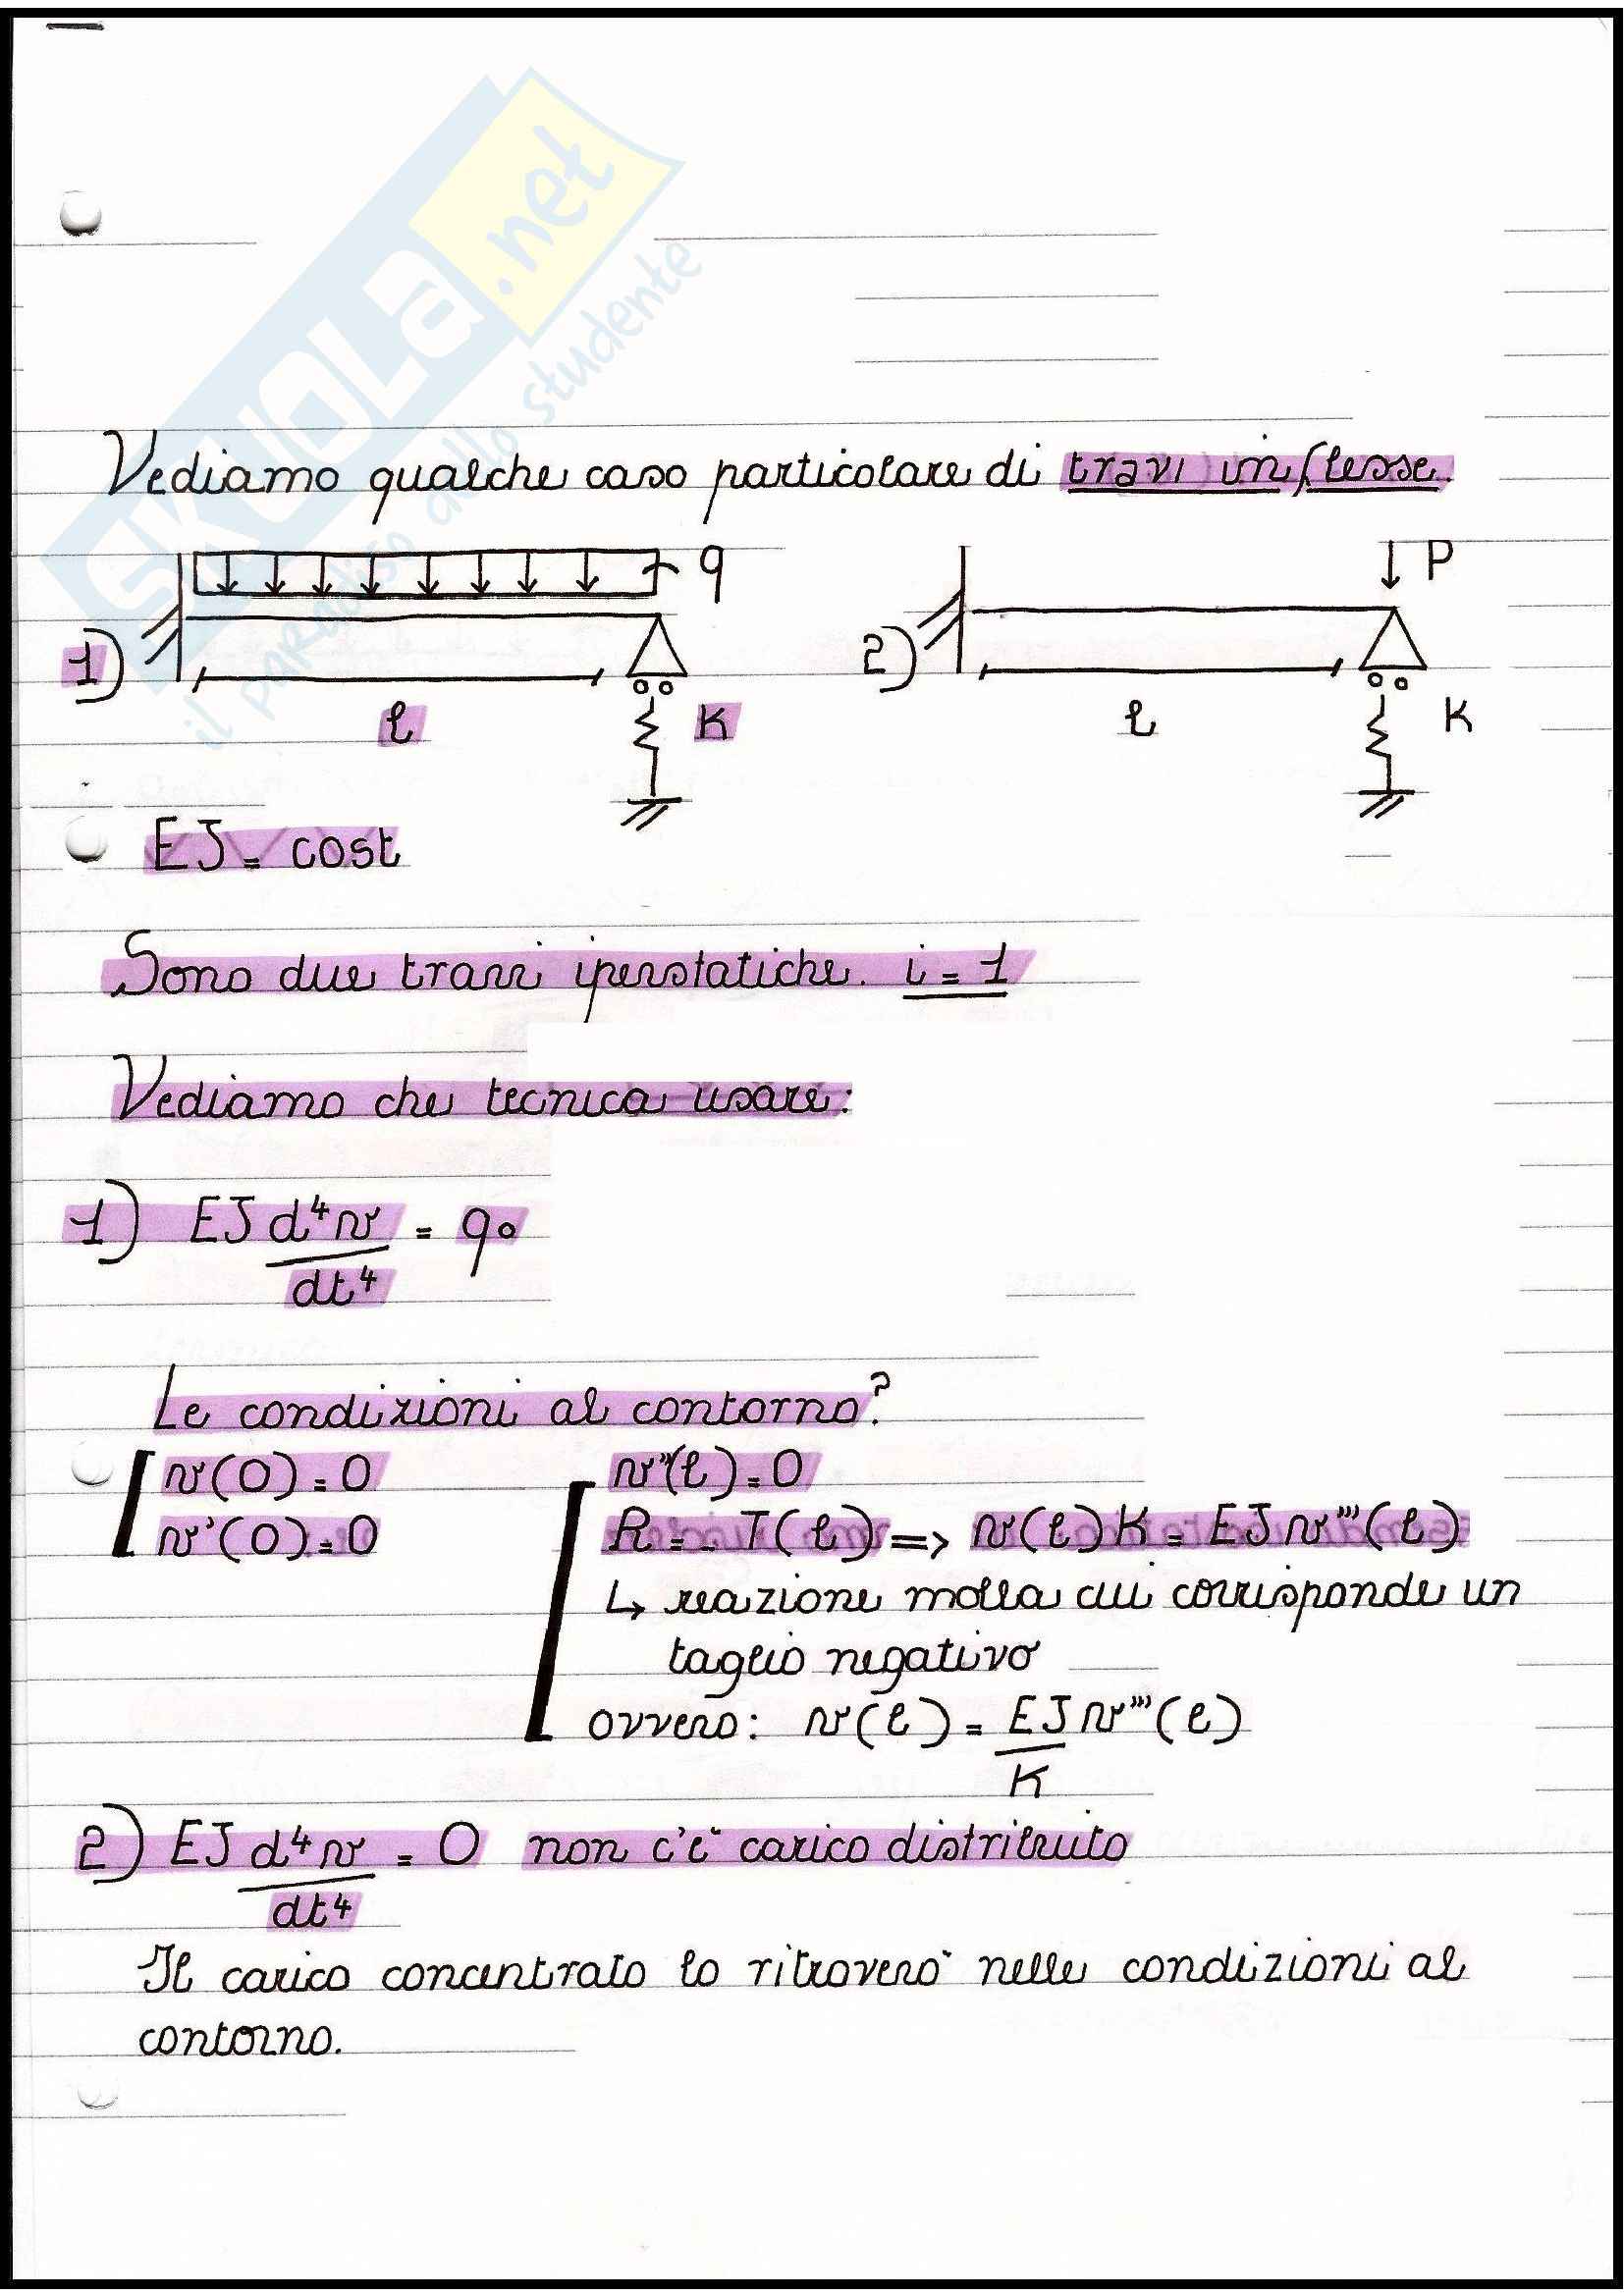 SKUOLA.net
il paradiso dello studente
Vediamo qualche caso particolare di travi inflesse.
q P
1) 2)
l K l K
EJ = cost
Sono due travi iperstatiche. i = 1
Vediamo che tecnica usare:
1) EJ d⁴v = q₀
dt⁴
Le condizioni al contorno?
v(0) = 0 v''(l) = 0
v'(0) = 0 R = - T(l) => v(l)K = EJv'''(l)
↳ reazione molla cui corrisponde un
taglio negativo
ovvero: v(l) = EJ v'''(l)
K
2) EJ d⁴v = 0 non c'è carico distribuito
dt⁴
Il carico concentrato lo ritroverò nelle condizioni al
contorno.